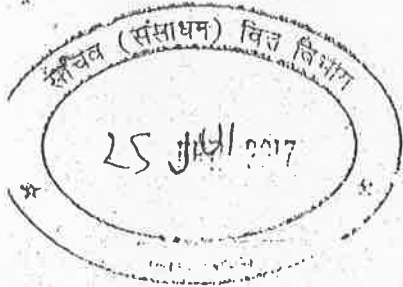 सचिव (संसाधन) वित्त विभाग
25 JUL 2017